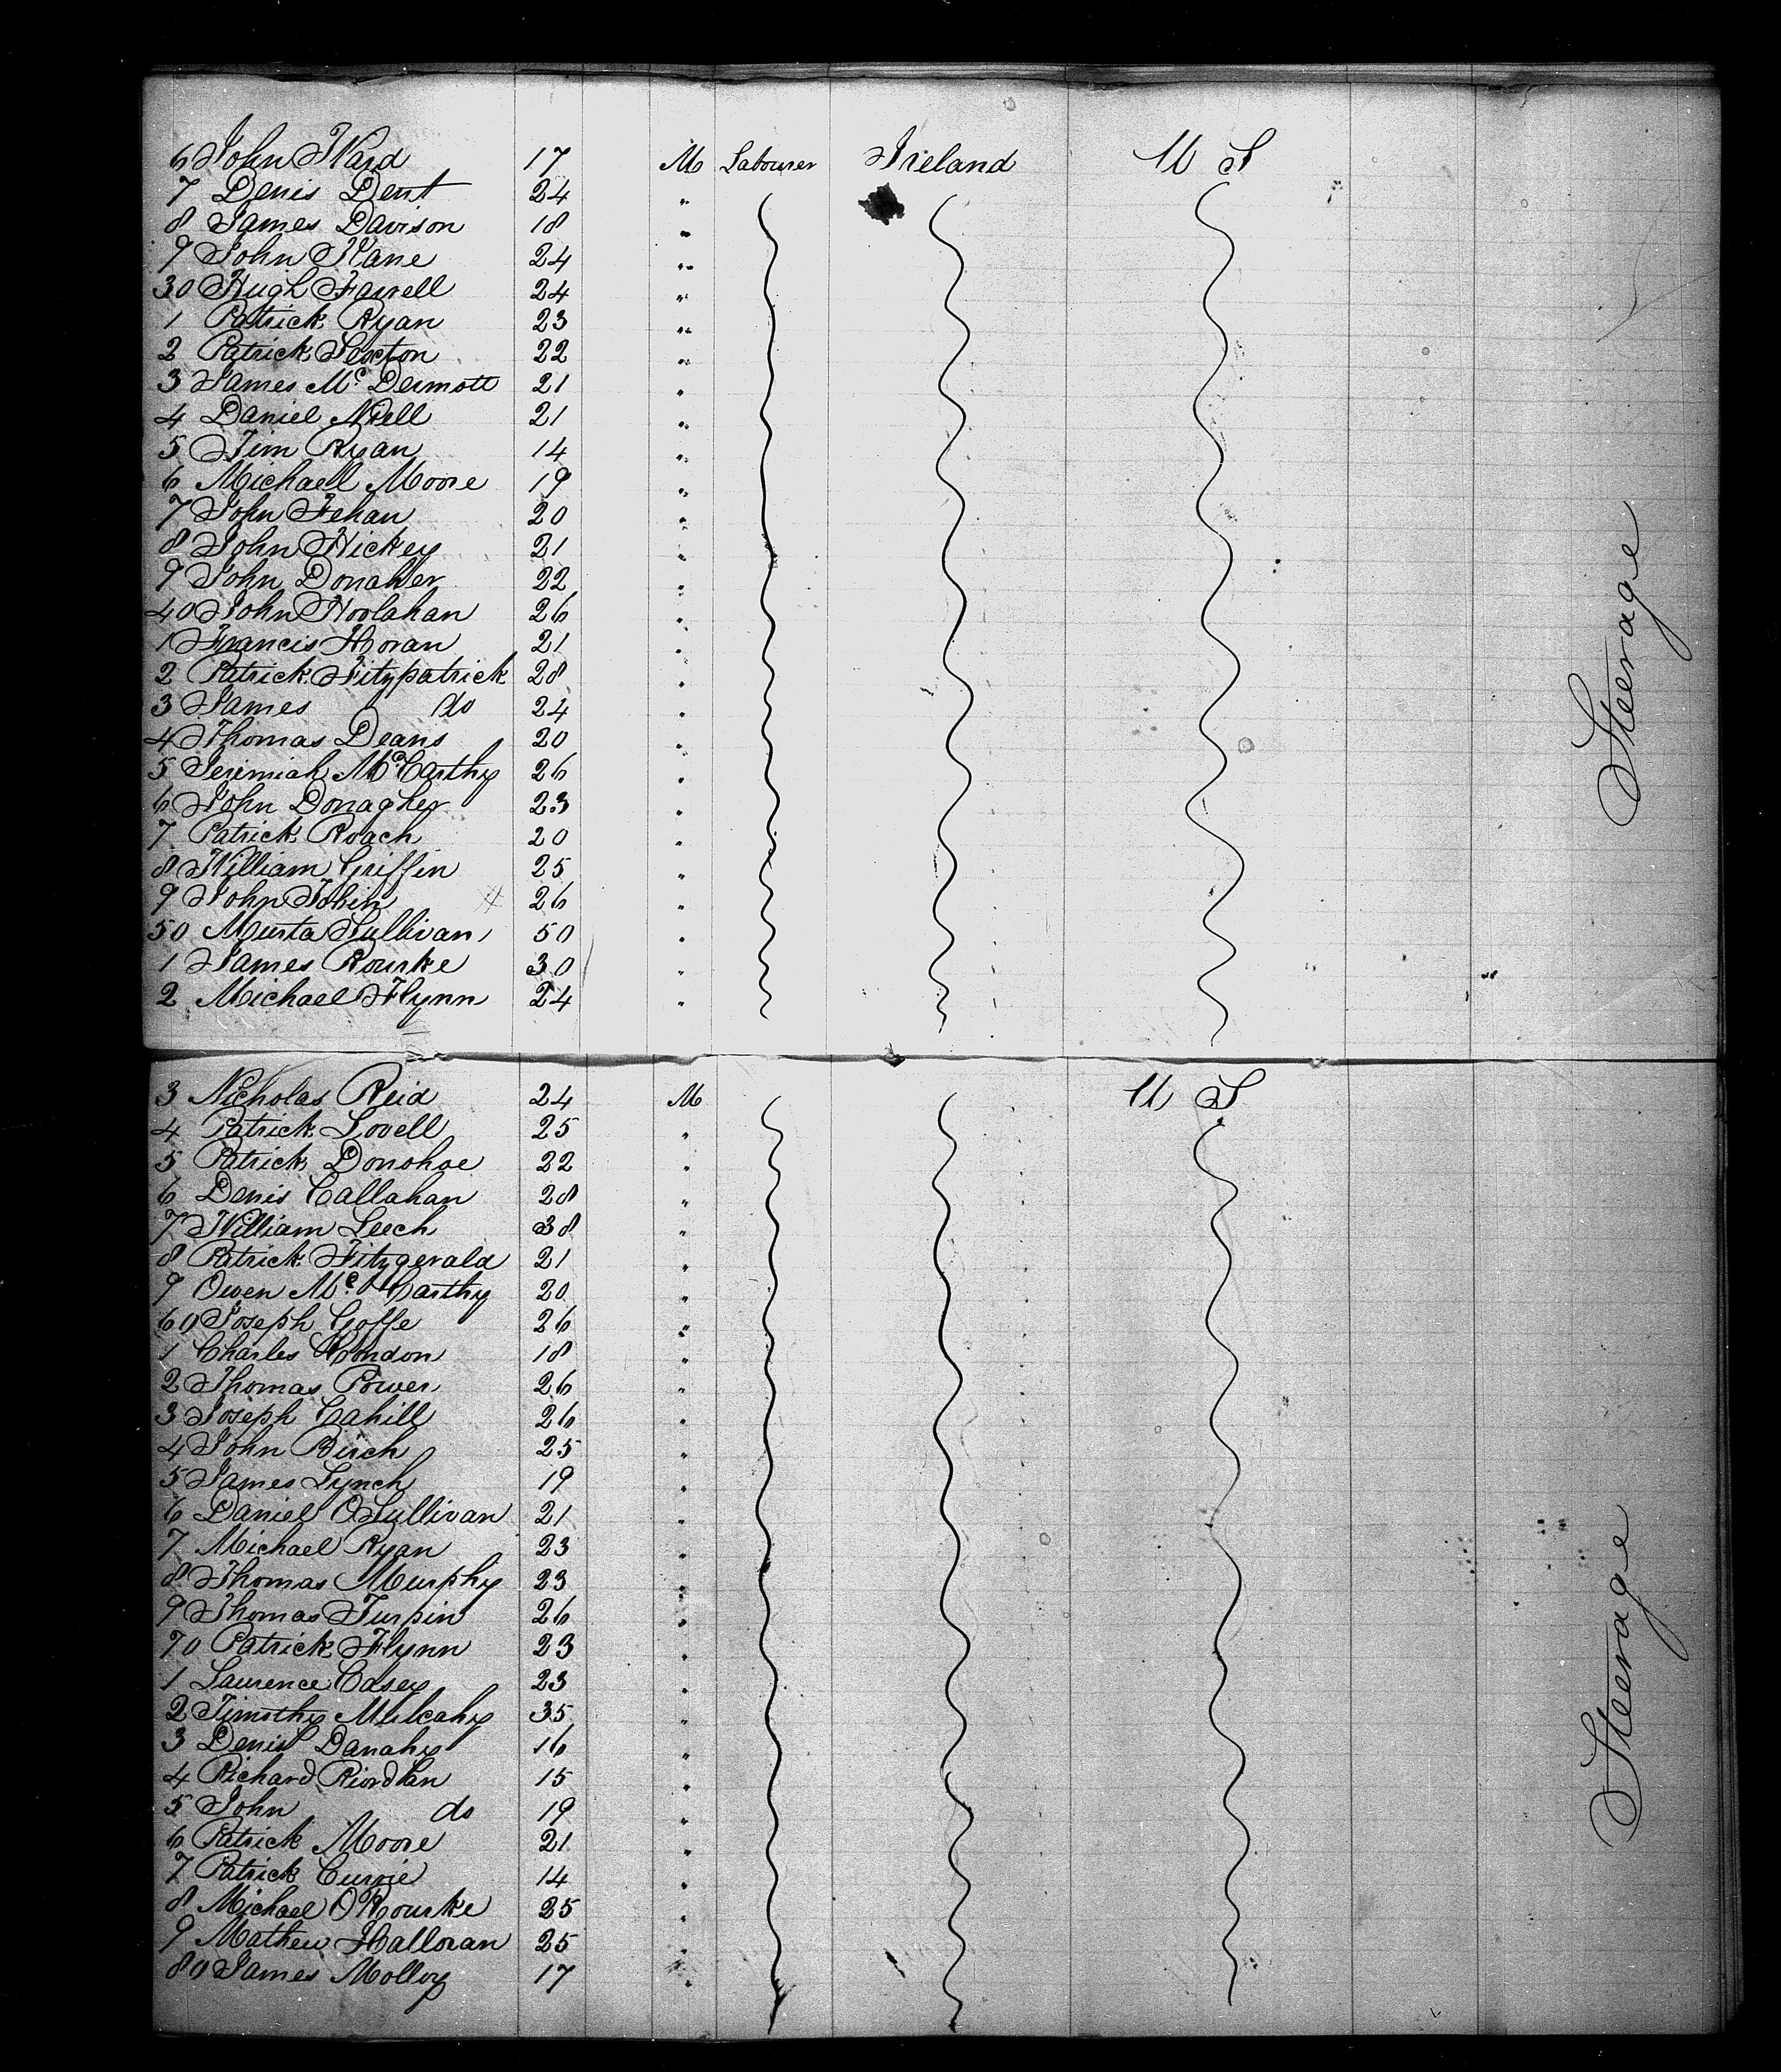 6 John Ward 17 M Labourer Ireland U S
7 Denis Dent 24 "
8 James Davison 18 "
9 John Kane 24 "
30 Hugh Farrell 24 "
1 Patrick Ryan 23 "
2 Patrick Sexton 22 "
3 James Mc Dermott 21 "
4 Daniel Niell 21 "
5 Tim Ryan 14 "
6 Michael Moore 19 "
7 John Fehan 20 "
8 John Hickey 21 "
9 John Donaher 22 "
40 John Hoolahan 26 "
1 Francis Horan 21 "
2 Patrick Fitzpatrick 28 "
3 James do 24 "
4 Thomas Deans 20 "
5 Jeremiah McCarthy 26 "
6 John Donagher 23 "
7 Patrick Roach 20 "
8 William Griffin 25 "
9 John Tobin 26 "
50 Murta Sullivan 50 "
1 James Rourke 30 "
2 Michael Flynn 24 "
Steerage
3 Nicholas Reid 24 M U S
4 Patrick Lovell 25 "
5 Patrick Donohoe 22 "
6 Denis Callahan 28 "
7 William Leech 38 "
8 Patrick Fitzgerald 21 "
9 Owen Mc Carthy 20 "
60 Joseph Goffe 26 "
1 Charles Condon 18 "
2 Thomas Power 26 "
3 Joseph Cahill 26 "
4 John Birch 25 "
5 James Lynch 19 "
6 Daniel OSullivan 21 "
7 Michael Ryan 23 "
8 Thomas Murphy 23 "
9 Thomas Turpin 26 "
70 Patrick Flynn 23 "
1 Laurence Casey 23 "
2 Timothy Mulcahy 35 "
3 Denis Danahy 16 "
4 Richard Riordan 15 "
5 John do 19 "
6 Patrick Moore 21 "
7 Patrick Currie 14 "
8 Michael ORourke 25 "
9 Mathew Halloran 25 "
80 James Molloy 17 "
Steerage